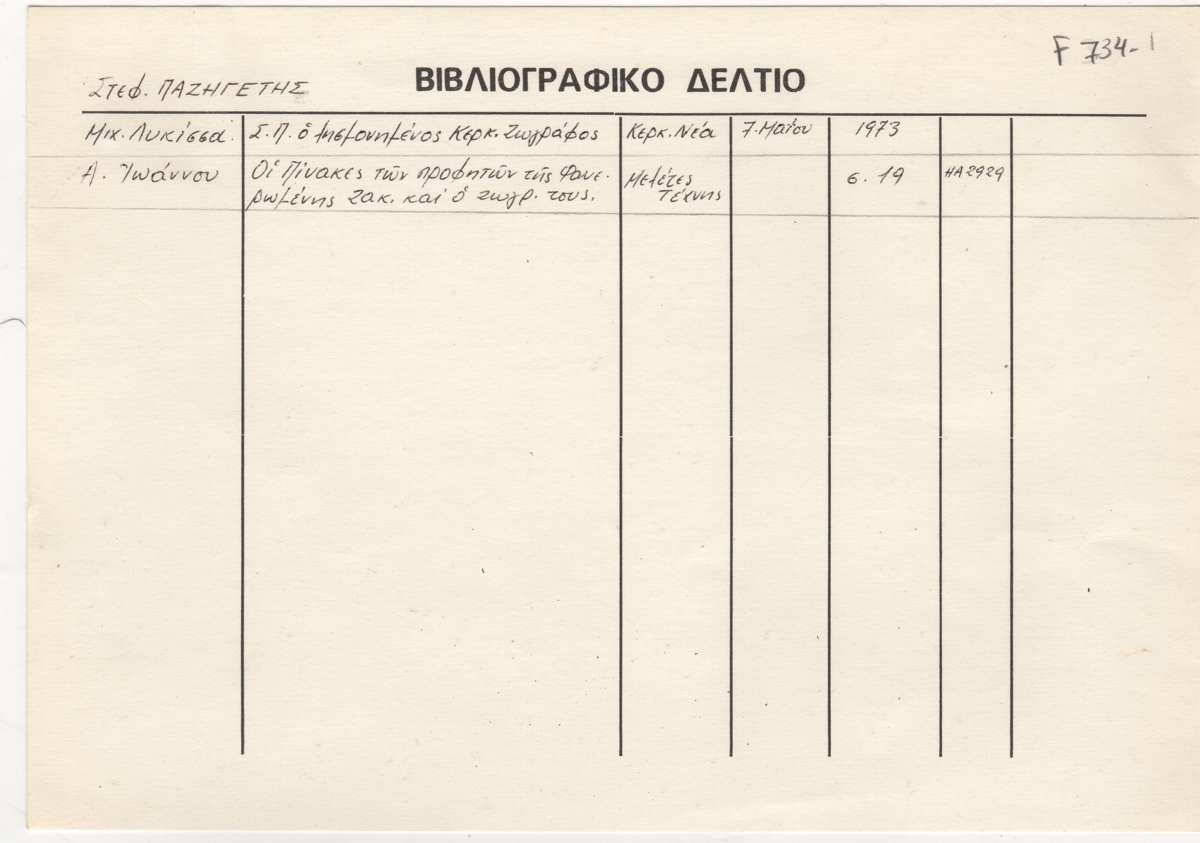 F 734-1
ΣΤΕΦ. ΠΑΖΗΓΕΤΗΣ ΒΙΒΛΙΟΓΡΑΦΙΚΟ ΔΕΛΤΙΟ
Μιχ. Λυκίσσα. Σ.Π. ὁ λησμονημένος Κερκ. Ζωγράφος Κερκ. Νέα 7. Μαΐου 1973
Α. Ἰωάννου Οἱ Πίνακες τῶν προφητῶν τῆς Φανε- Μελέτες σ. 19 ΗΑ2929
ρωμένης Ζακ. καί ὁ ζωγρ. τους. Τέχνης